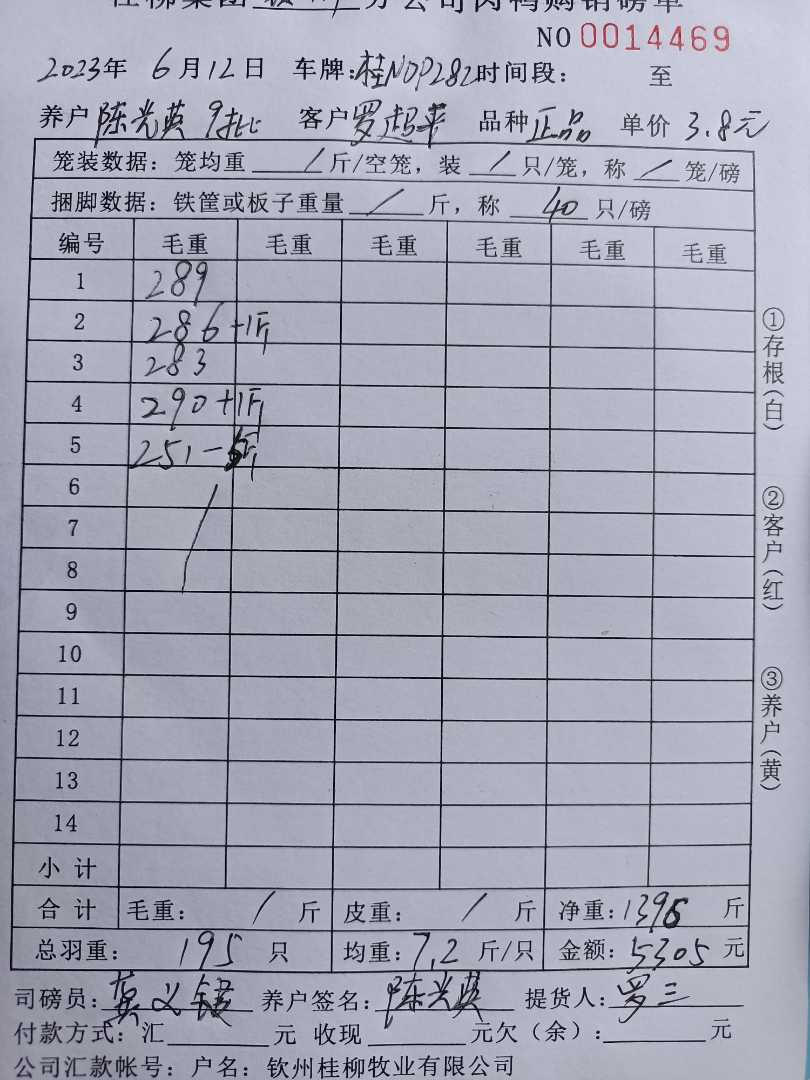 桂柳集团 分公司肉鸭购销磅单
NO 0014469
2023年 6月12日 车牌:桂NDP282 时间段: 至
养户 陈光英 9批 客户 罗超平 品种 正品 单价 3.8元
笼装数据: 笼均重 / 斤/空笼, 装 / 只/笼, 称 / 笼/磅
捆脚数据: 铁筐或板子重量 / 斤, 称 40 只/磅
编号 毛重 毛重 毛重 毛重 毛重 毛重
1 289
2 286+1斤
3 283
4 290+1斤
5 251-5斤
6
7
8
9
10
11
12
13
14
小计
合计 毛重: / 斤 皮重: / 斤 净重: 1396 斤
总羽重: 195 只 均重: 7.2 斤/只 金额: 5305 元
司磅员: 莫义 养户签名: 陈光英 提货人: 罗三
付款方式: 汇 元 收现 元欠(余): 元
公司汇款帐号: 户名: 钦州桂柳牧业有限公司
①存根(白)
②客户(红)
③养户(黄)